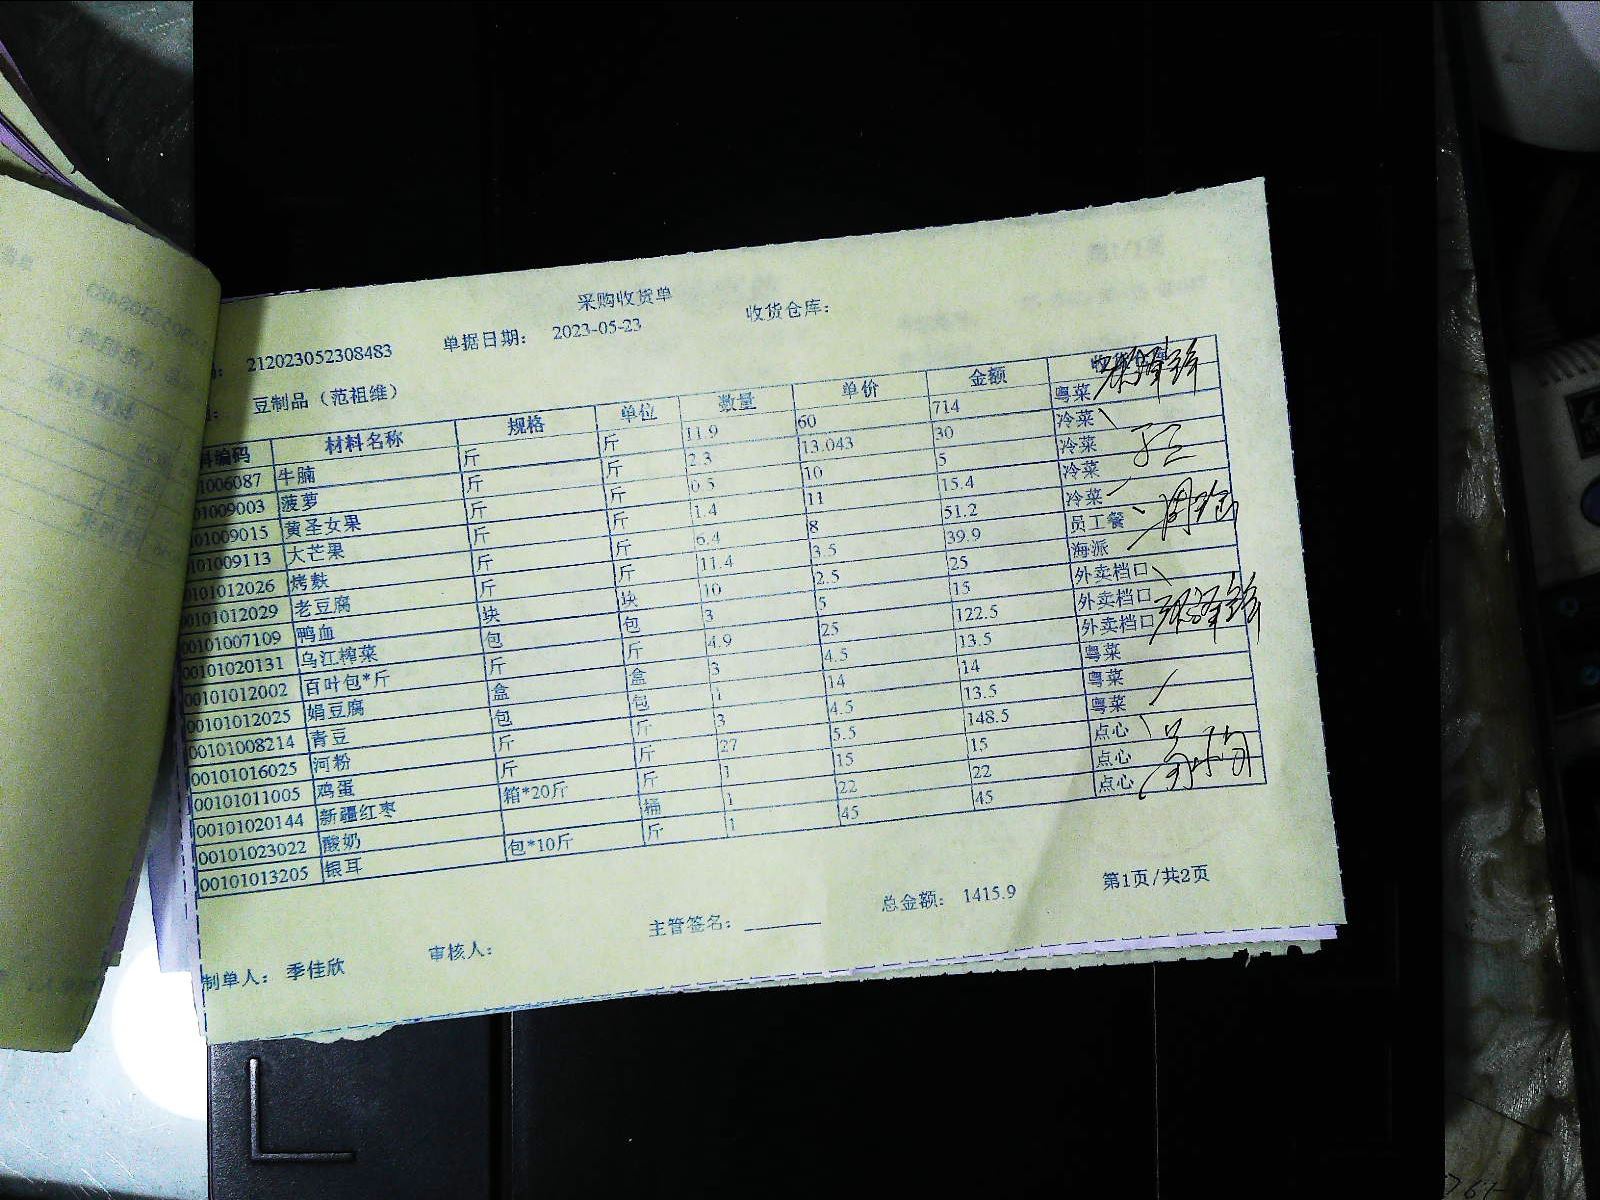 采购收货单
212023052308483 单据日期： 2023-05-23 收货仓库：
豆制品（范祖维）
编码 材料名称 规格 单位 数量 单价 金额
1006087 牛腩 斤 斤 11.9 60 714 粤菜
01009003 菠萝 斤 斤 2.3 13.043 30 冷菜
01009015 黄圣女果 斤 斤 0.5 10 5 冷菜
101009113 大芒果 斤 斤 1.4 11 15.4 冷菜
0101012026 烤麸 斤 斤 6.4 8 51.2 冷菜
00101012029 老豆腐 斤 斤 11.4 3.5 39.9 员工餐
00101007109 鸭血 块 块 10 2.5 25 海派
00101020131 乌江榨菜 包 包 3 5 15 外卖档口
00101012002 百叶包*斤 斤 斤 4.9 25 122.5 外卖档口
00101012025 娟豆腐 盒 盒 3 4.5 13.5 外卖档口
00101008214 青豆 包 包 1 14 14 粤菜
00101016025 河粉 斤 斤 3 4.5 13.5 粤菜
00101011005 鸡蛋 斤 斤 27 5.5 148.5 粤菜
00101020144 新疆红枣 箱*20斤 斤 1 15 15 点心
00101023022 酸奶 桶 1 22 22 点心
00101013205 银耳 包*10斤 斤 1 45 45 点心
制单人： 季佳欣 审核人： 主管签名： 总金额： 1415.9 第1页/共2页